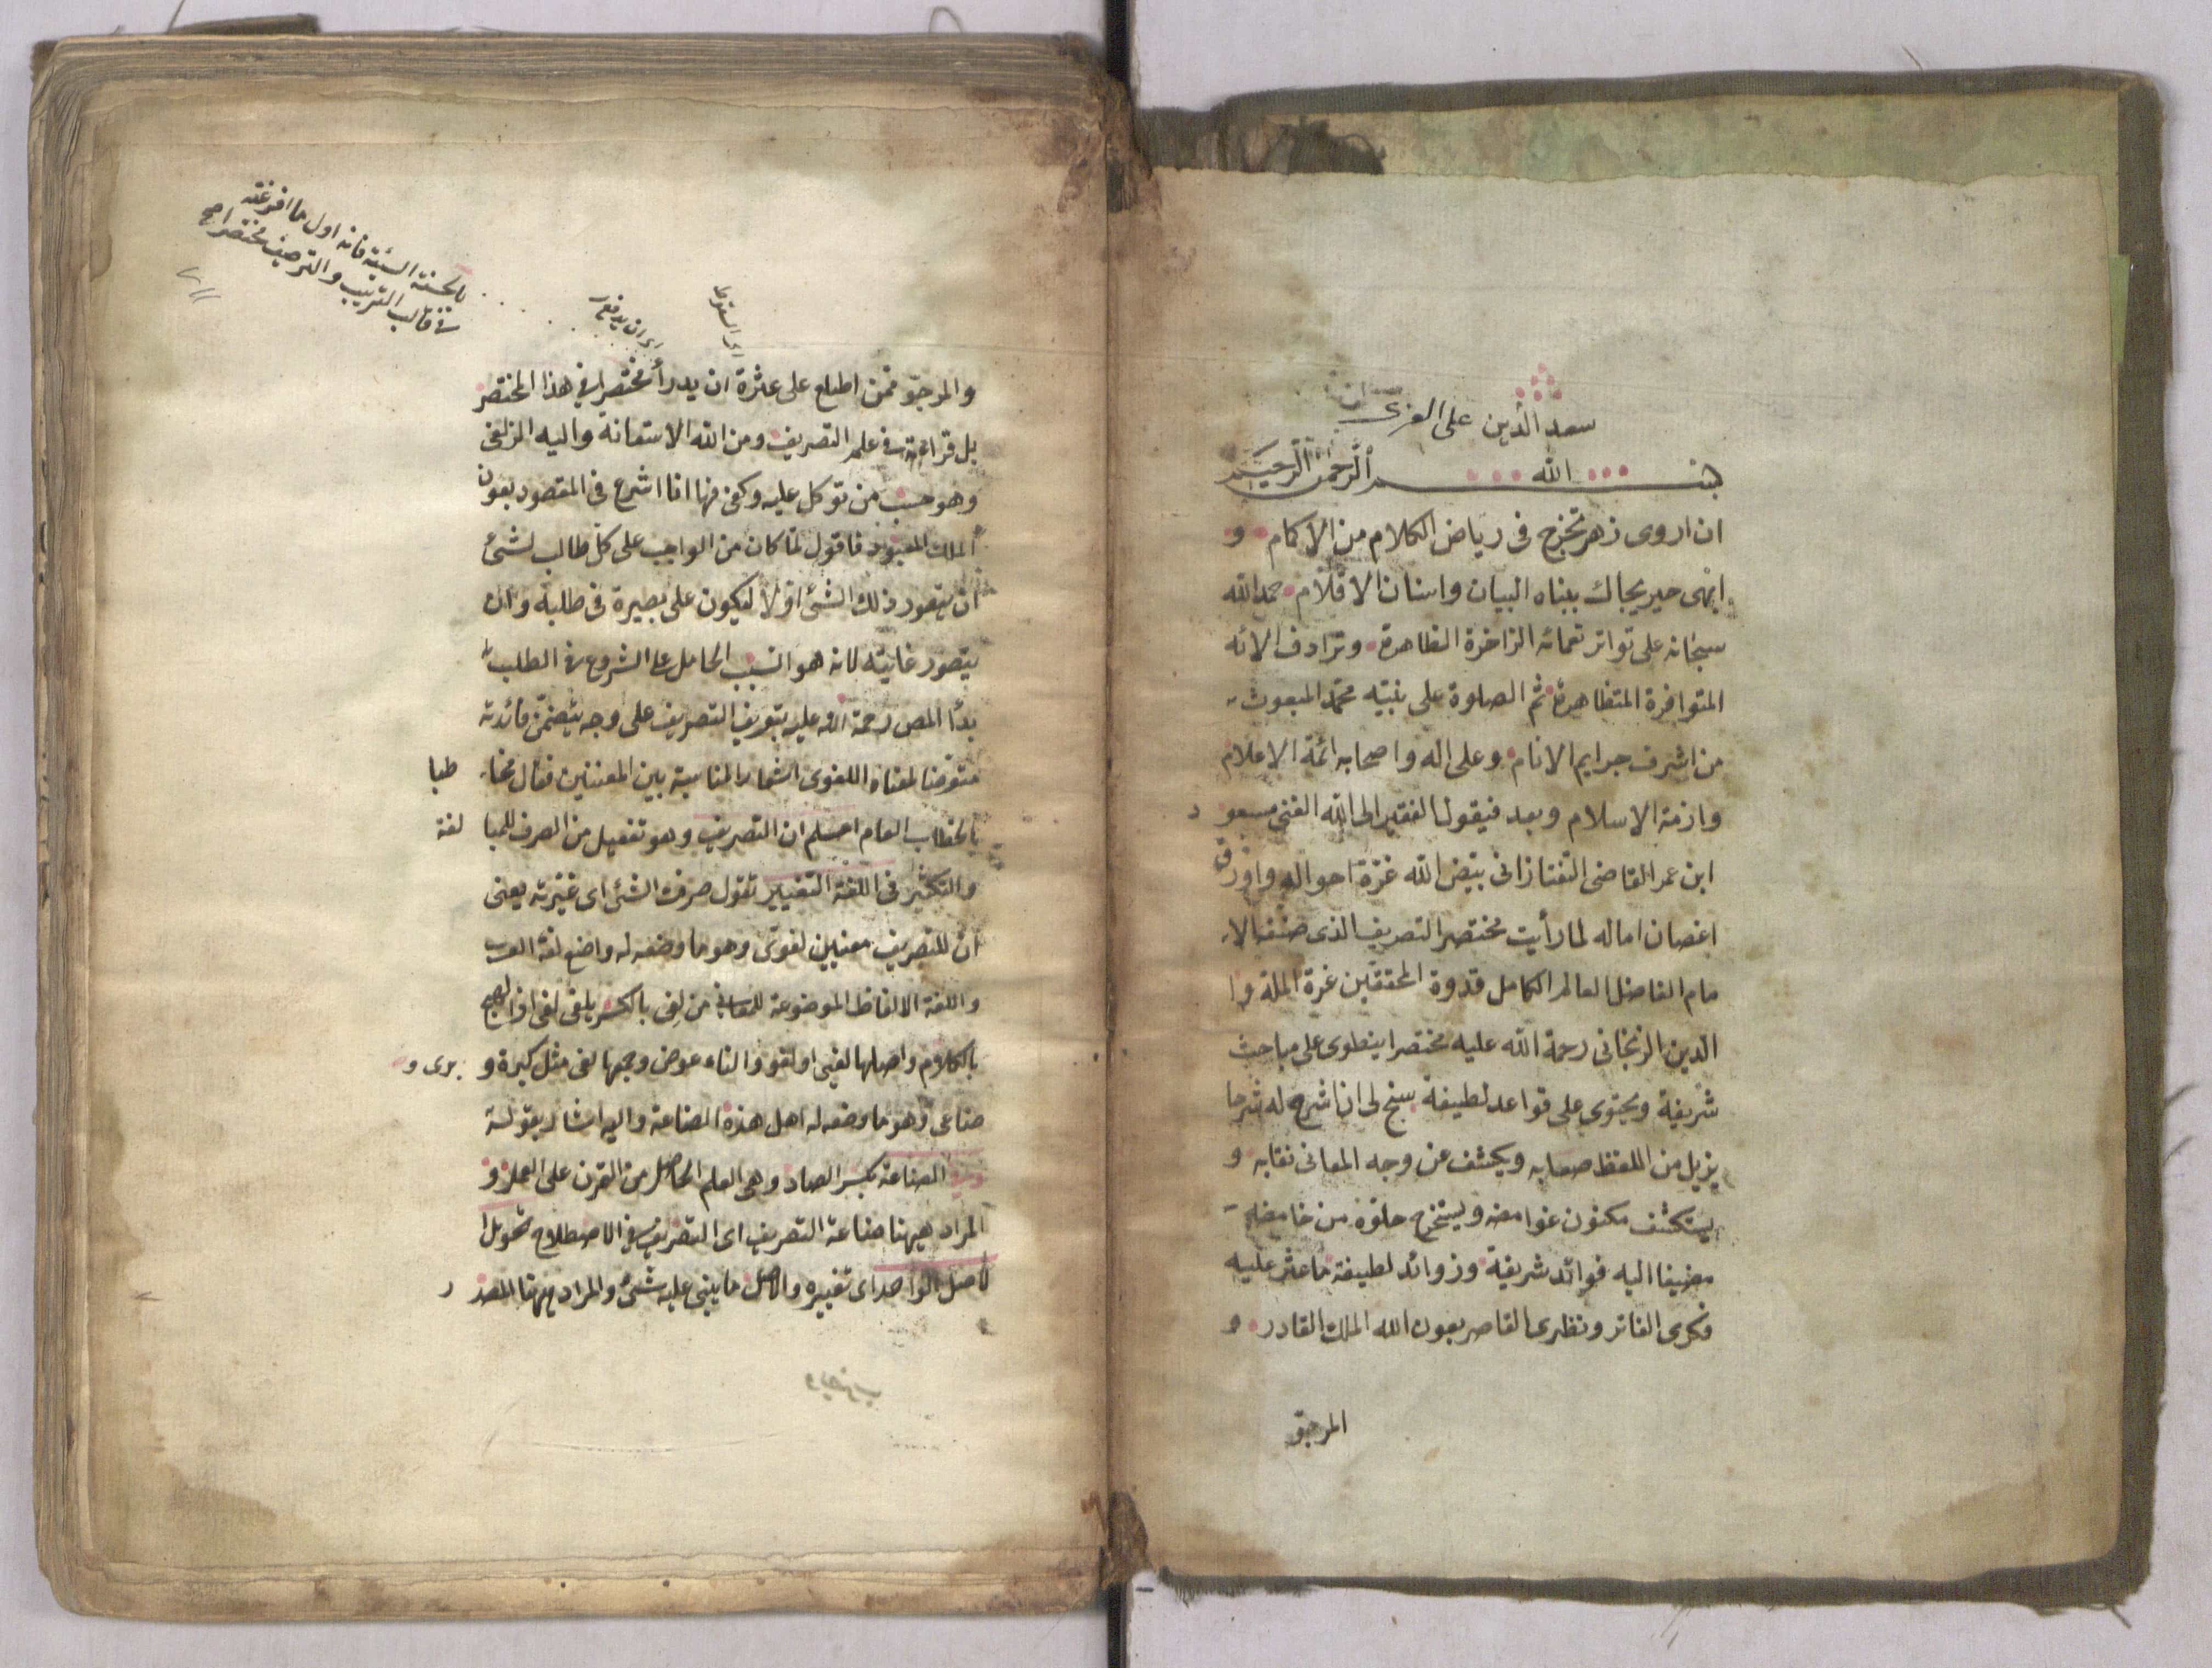 سعد الدين على العزى
بسم الله الرحمن الرحيم
ان اروى زهر تخرج فى رياض الكلام من الاكمام و
ابهى حبر يحاك ببناه البيان واسنان الاقلام حمد الله
سبحانه على تواتر نعمائه الزاخرة الظاهرة وترادف الائه
المتوافرة المتظاهرة ثم الصلوة على نبيه محمد المبعوث
من اشرف جرايم الانام وعلى اله واصحابه ائمة الاعلام
وازمة الاسلام وبعد فيقول الفقير الى الله الغنى مسعو د
ابن عمر القاضى التفتازانى بيض الله غرة احواله واورق
اغصان اماله لما رأيت مختصر التصريف الذى صنفه الا
مام الفاضل العالم الكامل قدوة المحققين عزة الملة وا
الدين الزنجانى رحمة الله عليه مختصرا ينطوى على مباحث
شريفة ويحتوى على قواعد لطيفة سنح لى ان اشرح له شرحا
يزيل من اللفظ صعابه ويكشف عن وجه المعانى نقابه و
يستكشف مكنون غوامضه ويستخرج حلوه من حامضه
مضيفا اليه فوائد شريفة وزوائد لطيفة ما عثر عليه
فكرى الفاتر ونظرى القاصر بعون الله الملك القادر و
المرجو
بالحسنة السيئة فانه اول ما افرغته
فى قالب الترتيب والترصيف مختصرا صح
اى السقوط
اى ان يدفع
والمرجو فمن اطلع على عثرة ان يدرأ مختصرا فى هذا المختصر
بل قراءته فى علم التصريف ومن الله الاستعانة واليه الزلفى
وهو حسب من توكل عليه وكفى فها انا اشرع فى المقصود بعون
الملك المعبود فاقول لما كان من الواجب على كل طالب لشئ
ان يتصور ذلك الشئ اولا ليكون على بصيرة فى طلبه وان
يتصور غايته لانه هو السبب الحامل على الشروع فى الطلب
بدأ المص رحمة الله عليه بتعريف التصريف على وجه يتضمن فائدته
متعرضا لمعناه اللغوى اشعارا المناسبة بين المعنيين فقال مخا طبا
بالخطاب العام اعلم ان التصريف وهو تفعيل من الصرف للمبا لغة
والتكثير فى اللغة التغيير تقول صرفت الشئ اى غيرته يعنى
ان للتصريف معنيين لغوى وهو ما وضعه له واضع لغة العرب
واللغة الالفاظ الموضوعة للمعانى من لغى بالكسر يلغى لغى اذا لهج
بالكلام واصلها لغى او لغو والتاء عوض وجمعها لغى مثل كبرة و برى و
صناعى وهو ما وضعه له اهل هذه الصناعة واليه اشار بقوله
وفى الصناعة بكسر الصاد وهى العلم الحاصل من التمرن على العمل و
المراد ههنا صناعة التصريف اى التصريف فى الاصطلاح تحويل ا
لاصل الواحد اى تغييره والاصل ما يبنى عليه شئ والمراد ههنا المصد ر